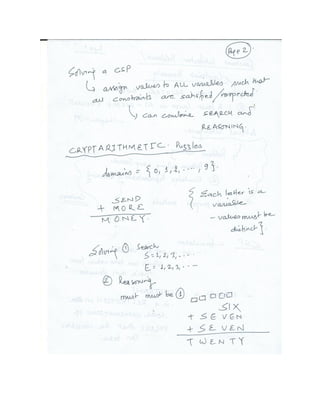 Page 2
Solving a CSP
↳ assign values to ALL variables such that
all constraints are satisfied/respected
↳ can combine SEARCH and
REASONING.
CRYPTARITHMETIC Puzzles
domains = {0, 1, 2, ..., 9}.
SEND
+ MORE
MONEY.
{ Each letter is a
variable
- values must be
distinct }.
Solving ① Search
S = 1, 2, 3, ....
E = 1, 2, 3, ...
② Reasoning
must must be ①
□□□□□
SIX
+ SEVEN
+ SEVEN
TWENTY